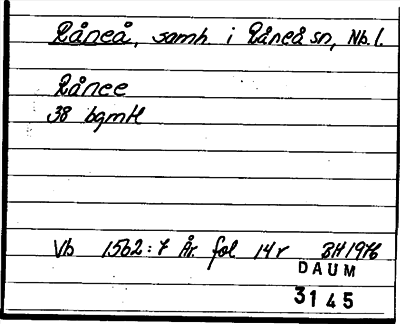 Råneå, samh. i Råneå sn, Nb. l.
Rånee
38 bgmtl
Vb 1562:7 År. fol 14r BH 1976
DAUM
3145